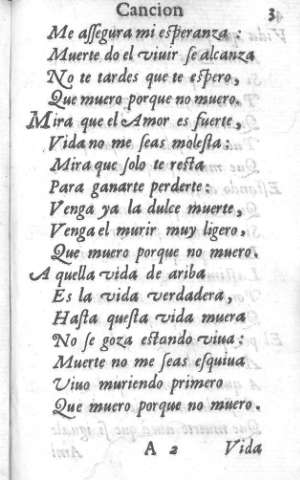 Cancion 3
Me aſſegura mi eſperanza :
Muerte do el viuir ſe alcanza
No te tardes que te eſpero,
Que muero porque no muero.
Mira que el Amor es fuerte,
Vida no me ſeas moleſta :
Mira que ſolo te reſta
Para ganarte perderte :
Venga ya la dulce muerte,
Venga el murir muy ligero,
Que muero porque no muero.
A quella vida de ariba
Es la vida verdadera,
Haſta queſta vida muera
No ſe goza eſtando viua :
Muerte no me ſeas eſquiua
Viuo muriendo primero
Que muero porque no muero.
A 2 Vida